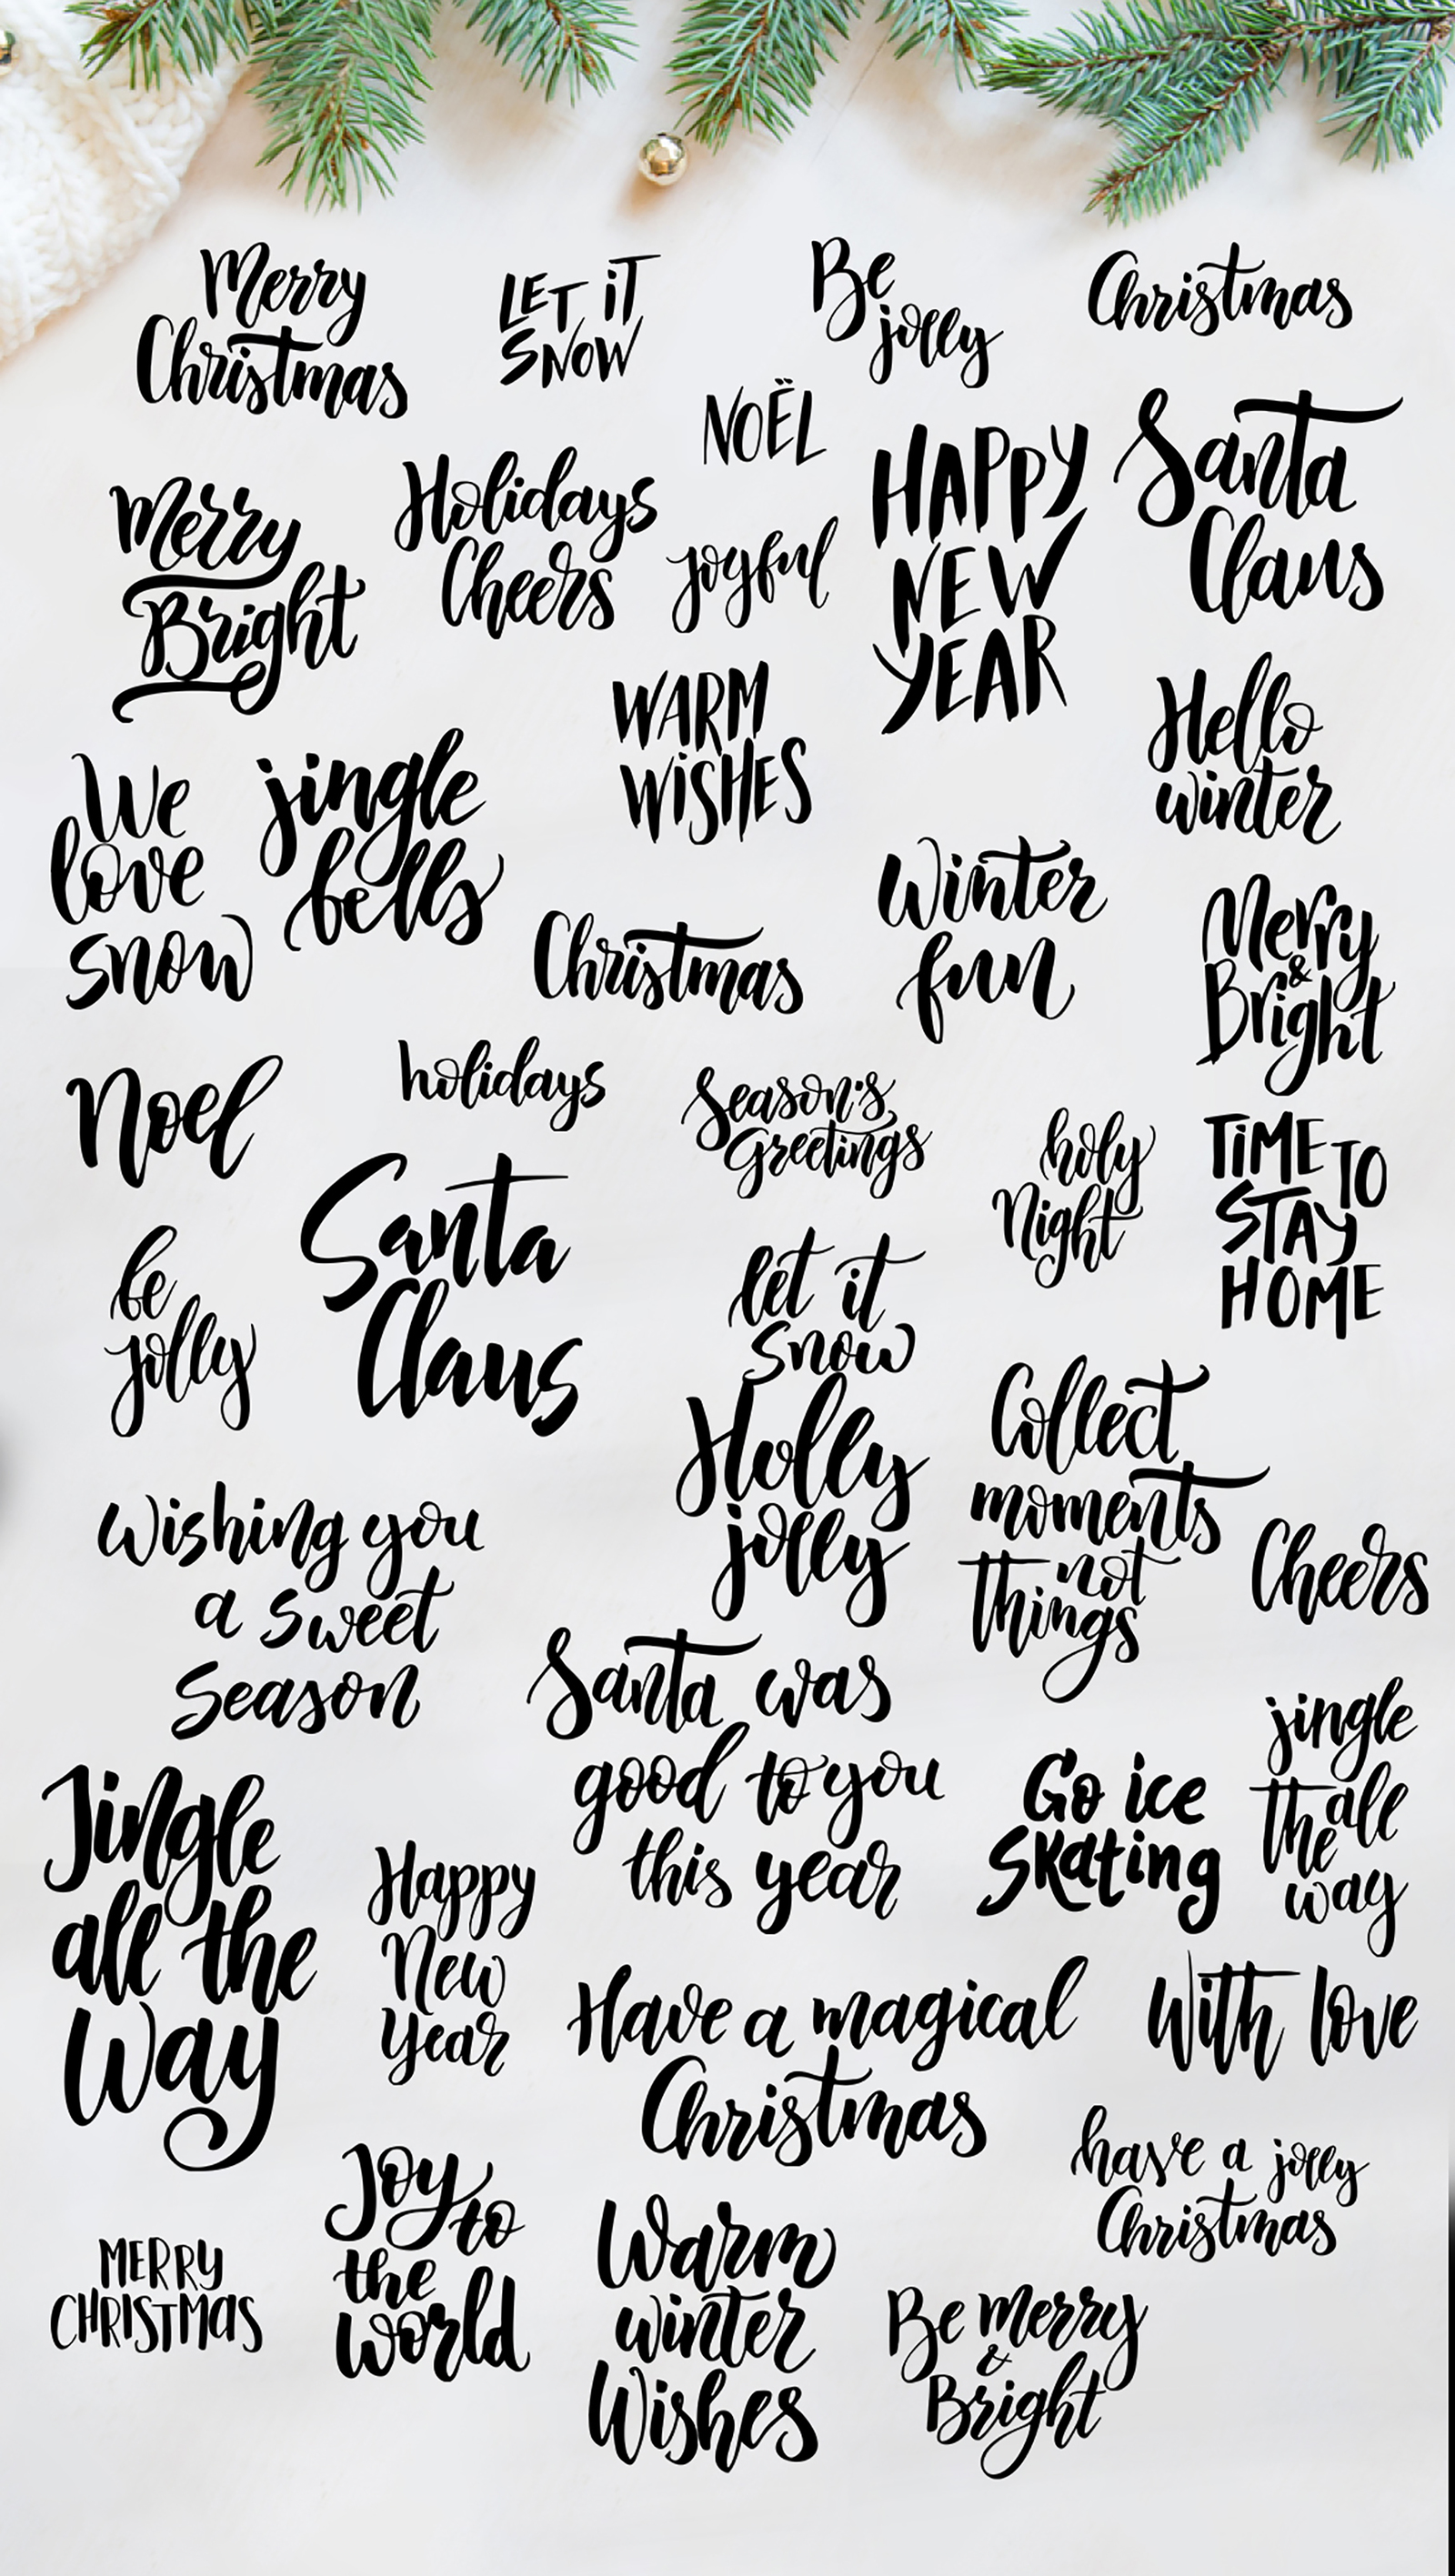 Merry
Christmas
LET iT
SNOW
Be
jolly
Christmas
NOËL
Santa
Claus
HAPPY
NEW
YEAR
Merry
Bright
Holidays
Cheers
joyful
WARM
WiSHES
Hello
winter
We
love
snow
jingle
bells
Christmas
Winter
fun
Merry
&
Bright
Noel
holidays
Season's
Greetings
holy
Night
TiME TO
STAY
HOME
Santa
Claus
be
jolly
let it
snow
Holly
jolly
Collect
moments
not
things
Cheers
Wishing you
a sweet
Season
Santa was
good to you
this year
Go ice
Skating
jingle
all
the
way
Jingle
all the
Way
Happy
New
Year
Have a magical
Christmas
With love
have a jolly
Christmas
MERRY
CHRISTMAS
Joy to
the
World
Warm
winter
Wishes
Be merry
&
Bright